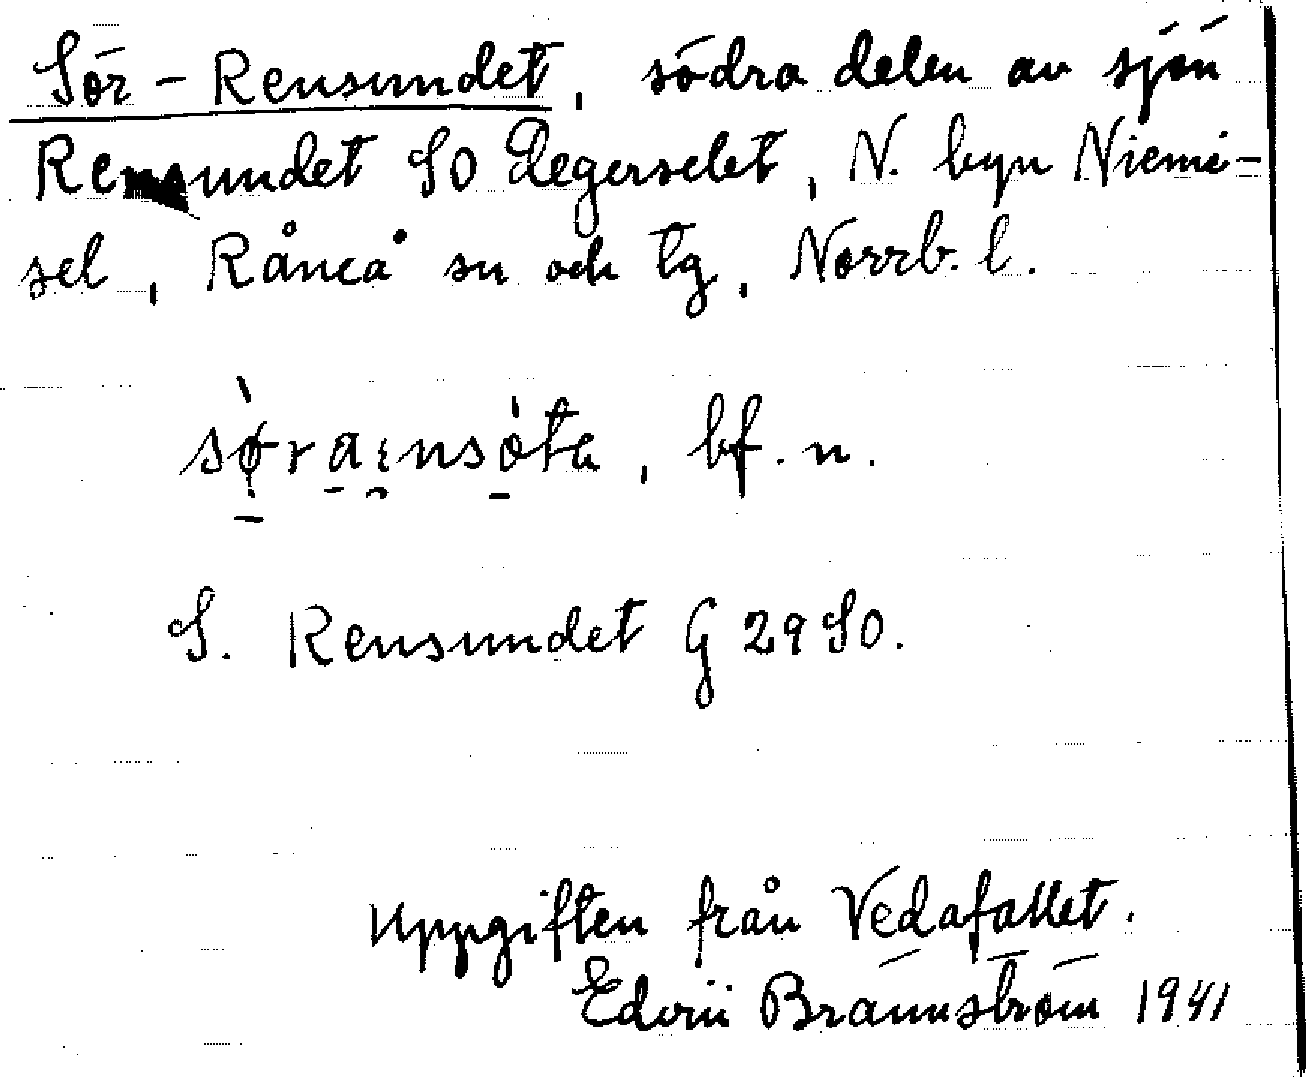 Sör-Rensundet, södra delen av sjön
Rensundet SO Degerselet, N. byn Niemi-
sel, Råneå sn och tg, Norrb. l.
bf. n.
S. Rensundet G 29 SO.
Uppgiften från Vedafallet.
Edvin Brännström 1941